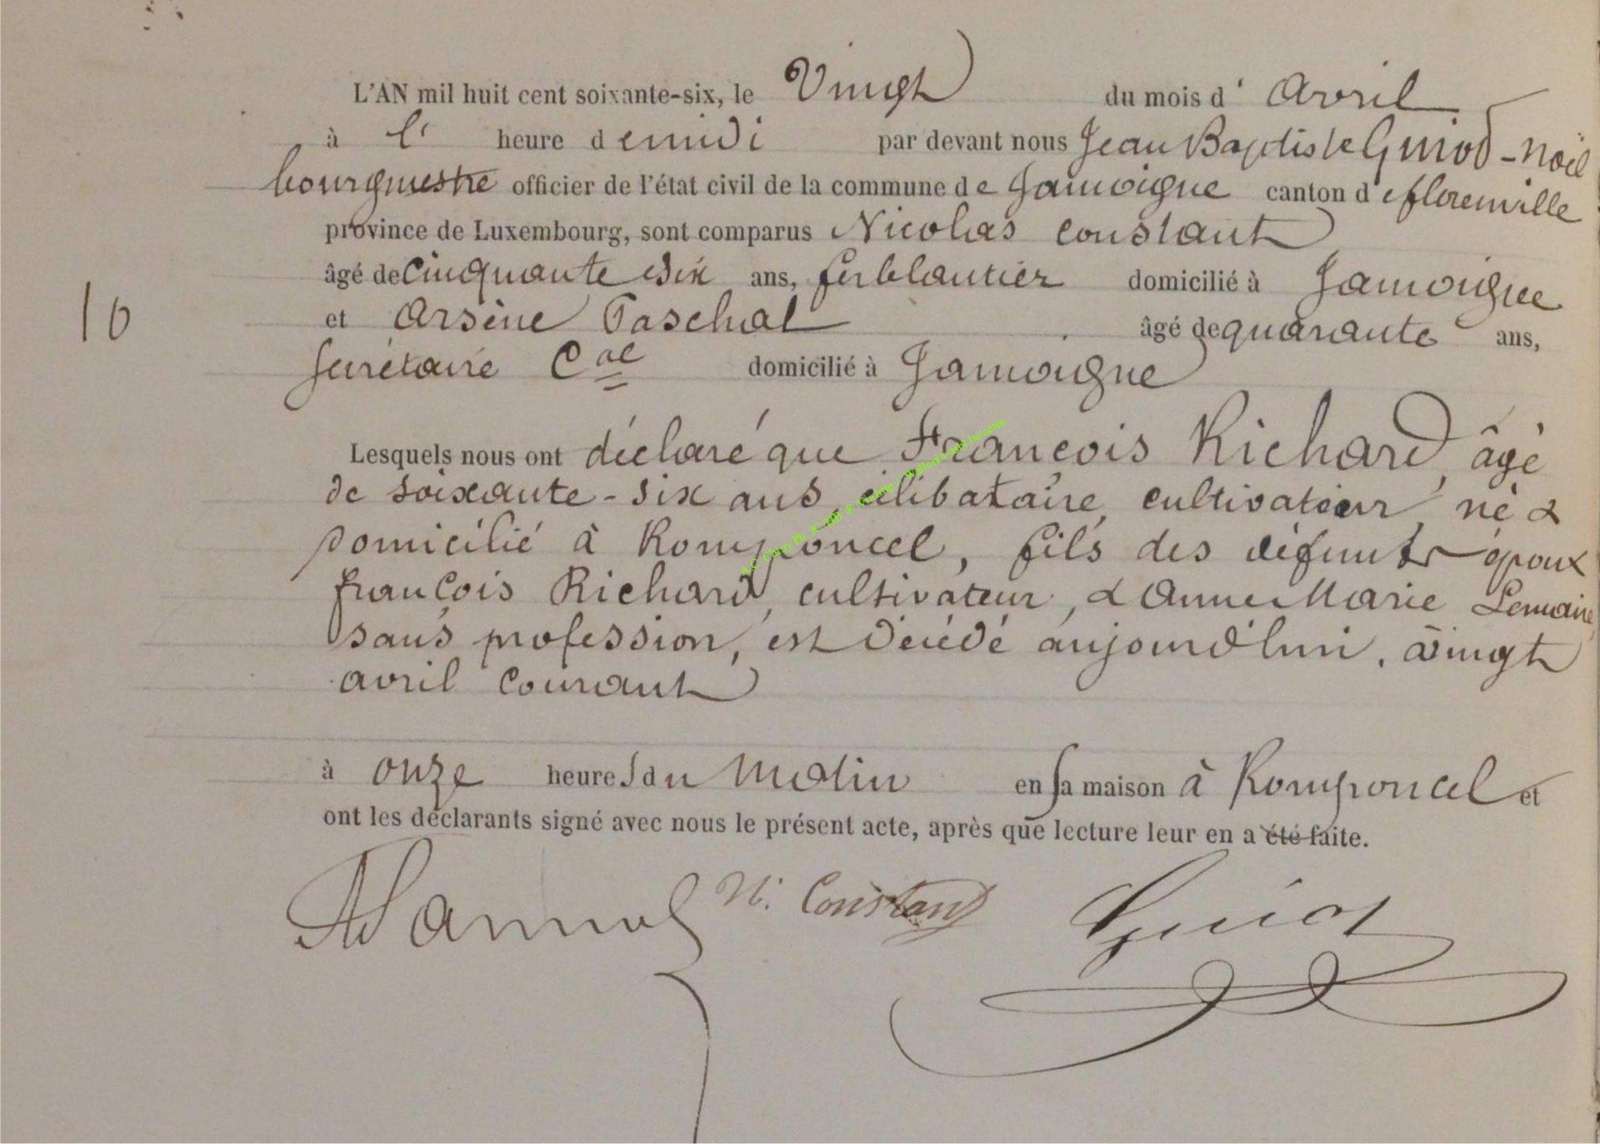 L'AN mil huit cent soixante-six, le Vingt du mois d' avril
à l' heure demidi par devant nous Jean Baptiste Guiot-Noël
bourgmestre officier de l'état civil de la commune de Jamoigne canton de florenville
province de Luxembourg, sont comparus Nicolas Constant
âgé de cinquante six ans, ferblantier domicilié à Jamoigne
10
et Arsène Paschal âgé de quarante ans,
secrétaire Cal domicilié à Jamoigne
Lesquels nous ont déclaré que François Richard, âgé
de soixante-six ans, célibataire, cultivateur, né &
domicilié à Romponcel, fils des défunts époux
françois Richard, cultivateur, & Anne Marie Lemaire,
sans profession, est décédé aujourd'hui, vingt
avril courant
à onze heures du matin en sa maison à Romponcel et
ont les déclarants signé avec nous le présent acte, après que lecture leur en a été faite.
N. Constant Guiot